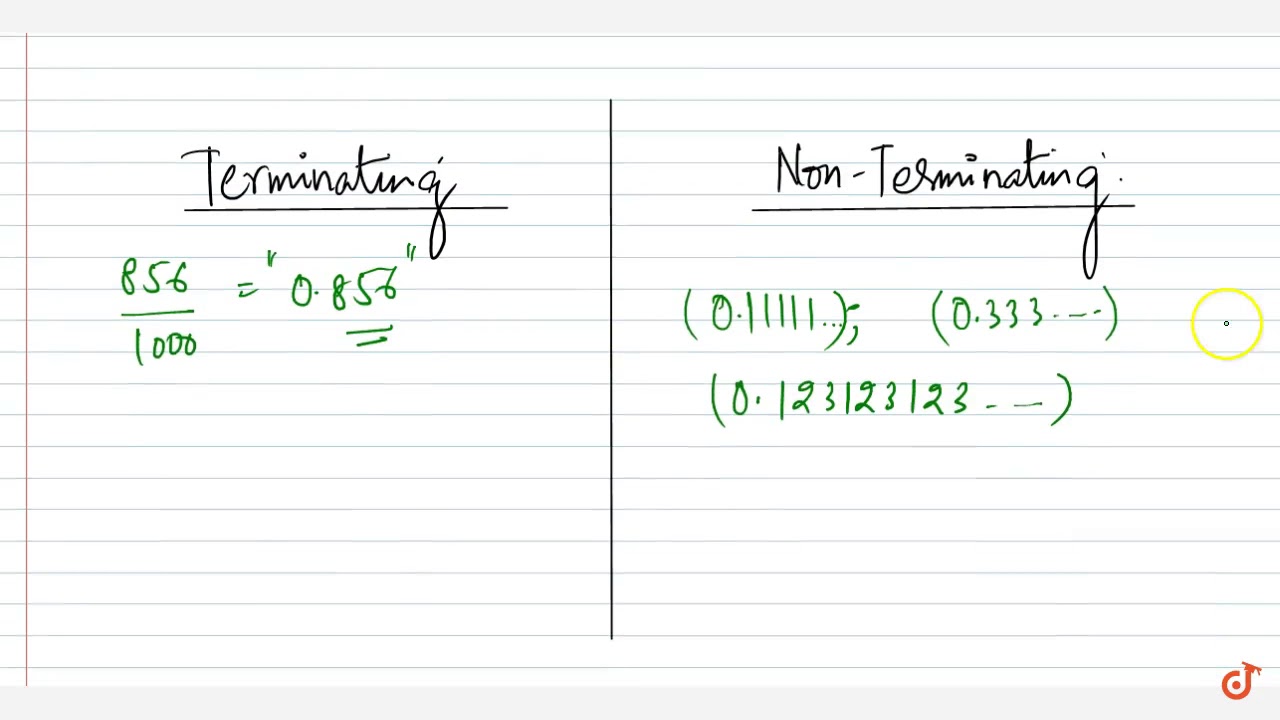 Terminating
856/1000 = "0.856"
Non-Terminating.
(0.11111...); (0.333....)
(0.123123123 - --)